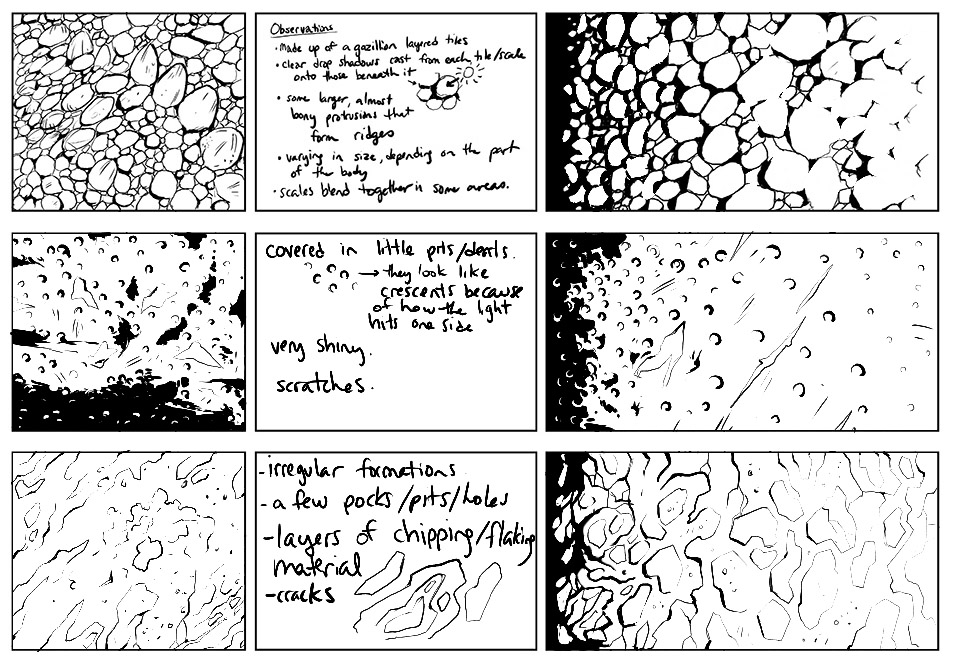 Observations
• Made up of a gazillion layered tiles
• clear drop shadows cast from each tile/scale
onto those beneath it
• some larger, almost
bony protrusions that
form ridges
• varying in size, depending on the part
of the body
• scales blend together in some areas.
covered in little pits/dents.
→ they look like
crescents because
of how the light
hits one side
very shiny.
scratches.
-irregular formations
-a few pocks/pits/holes
-layers of chipping/flaking
material
-cracks